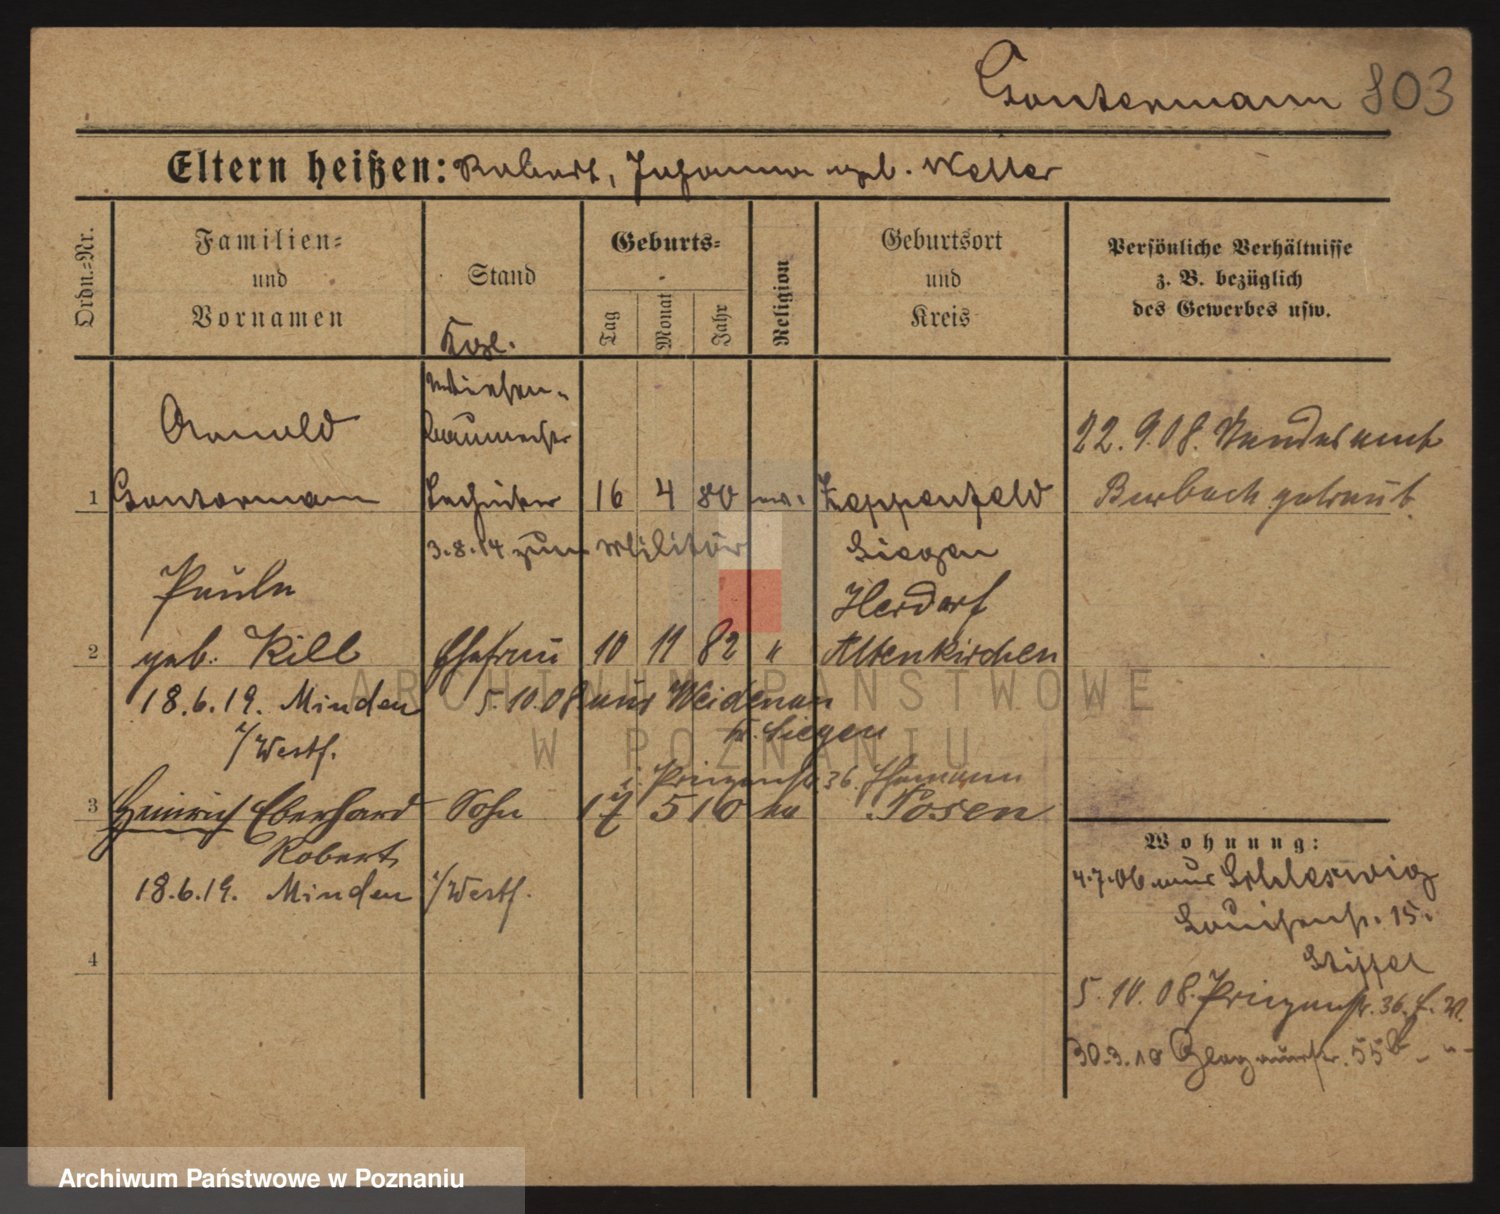 Gontermann 803
Eltern heißen: Robert, Johanna geb. Weller
Ordn.-Nr.
Familien-
und
Vornamen
Stand
Geburts-
Tag
Monat
Jahr
Religion
Geburtsort
und
Kreis
Persönliche Verhältnisse
z. B. bezüglich
des Gewerbes usw.
Kgl.
Wiesen-
baumeister
Arnold
22. 9. 08. Standesamt
1 Gontermann Techniker 16 4 80 ev. Zeppenfeld
Burbach getraut.
3.8.14 zum Militär Siegen
Paula
Herdorf
2 geb. Kill Ehefrau 10 11 82 " Altenkirchen
18.6.19. Minden
i/Westf.
5.10.08 aus Weidenau
Kr. Siegen
i. Prinzenstr 36.
3 Heinrich Eberhard Sohn 17 5 10 Posen
Robert
18.6.19. Minden i/Westf.
4
Wohnung:
4.7.06 aus Schleswig
Louisenstr. 15.
5.10.08. Prinzenstr. 36.
30.3.10 Glogauerstr. 55
ARCHIWUM PAŃSTWOWE
W POZNANIU
Archiwum Państwowe w Poznaniu